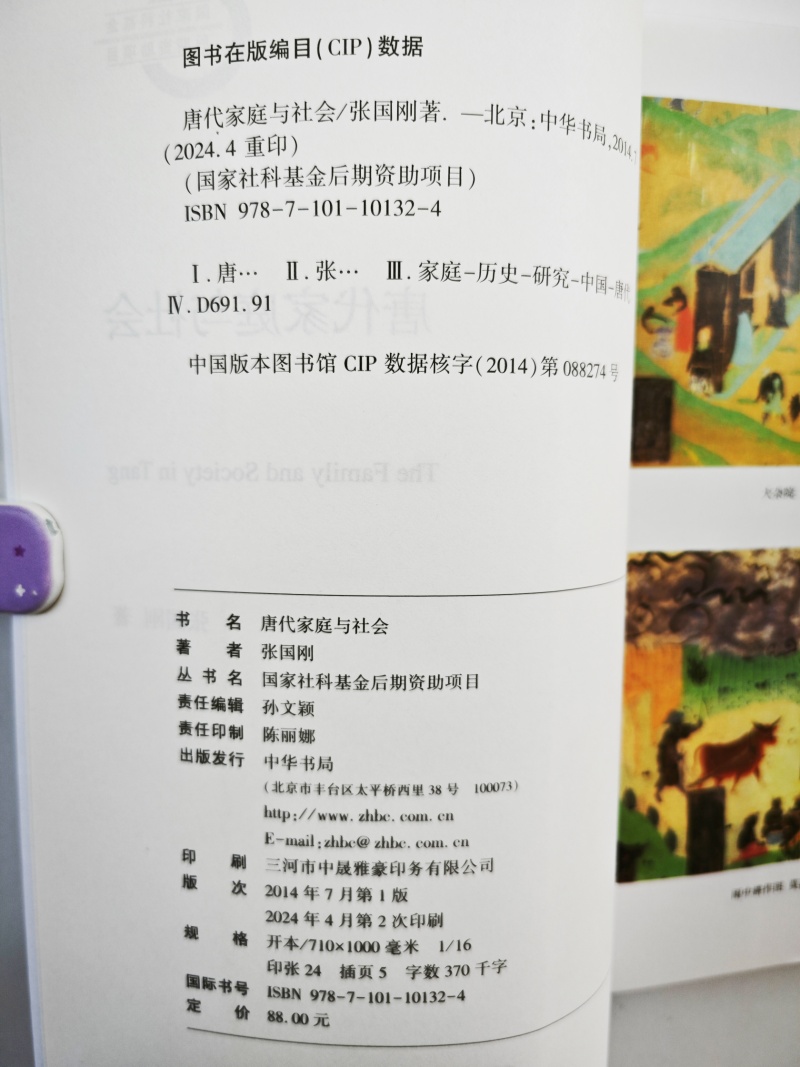 图书在版编目(CIP)数据
唐代家庭与社会/张国刚著. —北京:中华书局,2014.
(2024.4 重印)
(国家社科基金后期资助项目)
ISBN 978-7-101-10132-4
Ⅰ.唐… Ⅱ.张… Ⅲ.家庭-历史-研究-中国-唐代
Ⅳ.D691.91
中国版本图书馆 CIP 数据核字(2014)第 088274 号
唐代家庭与社会
The Family and Society in Tang
书 名 唐代家庭与社会
著 者 张国刚
丛 书 名 国家社科基金后期资助项目
责任编辑 孙文颖
责任印制 陈丽娜
出版发行 中华书局
(北京市丰台区太平桥西里 38 号 100073)
http://www.zhbc.com.cn
E-mail:zhbc@zhbc.com.cn
印 刷 三河市中晟雅豪印务有限公司
版 次 2014 年 7 月第 1 版
2024 年 4 月第 2 次印刷
规 格 开本/710×1000 毫米 1/16
印张 24 插页 5 字数 370 千字
国际书号 ISBN 978-7-101-10132-4
定 价 88.00 元